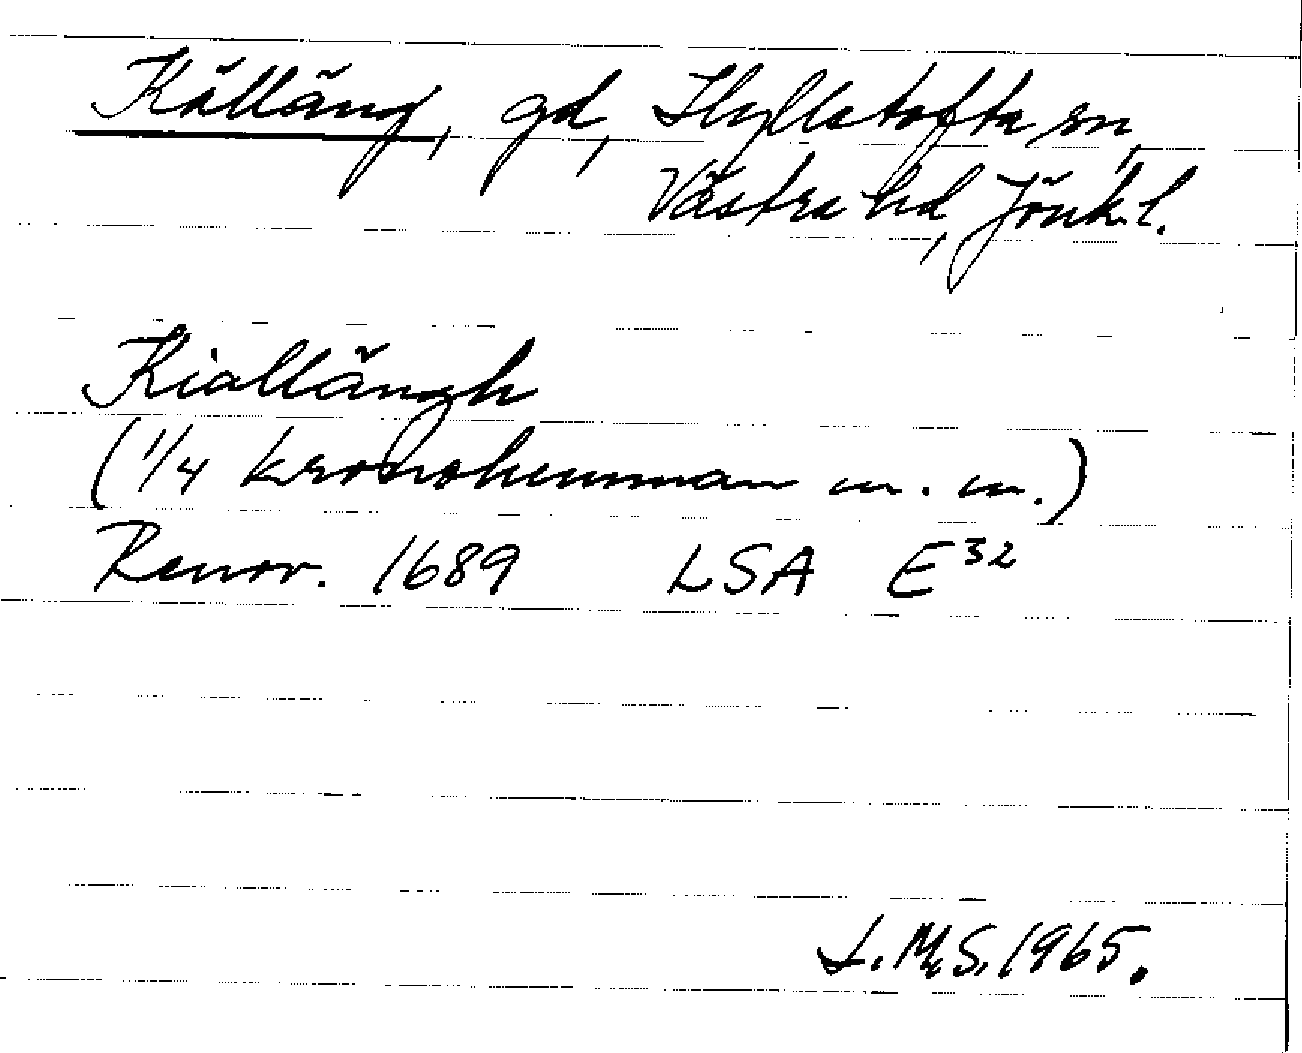 Källäng, gd, Hyllstofta sn,
Västra hd, Jönk. l.
Kiallängh
(1/4 kronohemman m. m.)
Renov. 1689 LSA E³²
L.M.S. 1965.